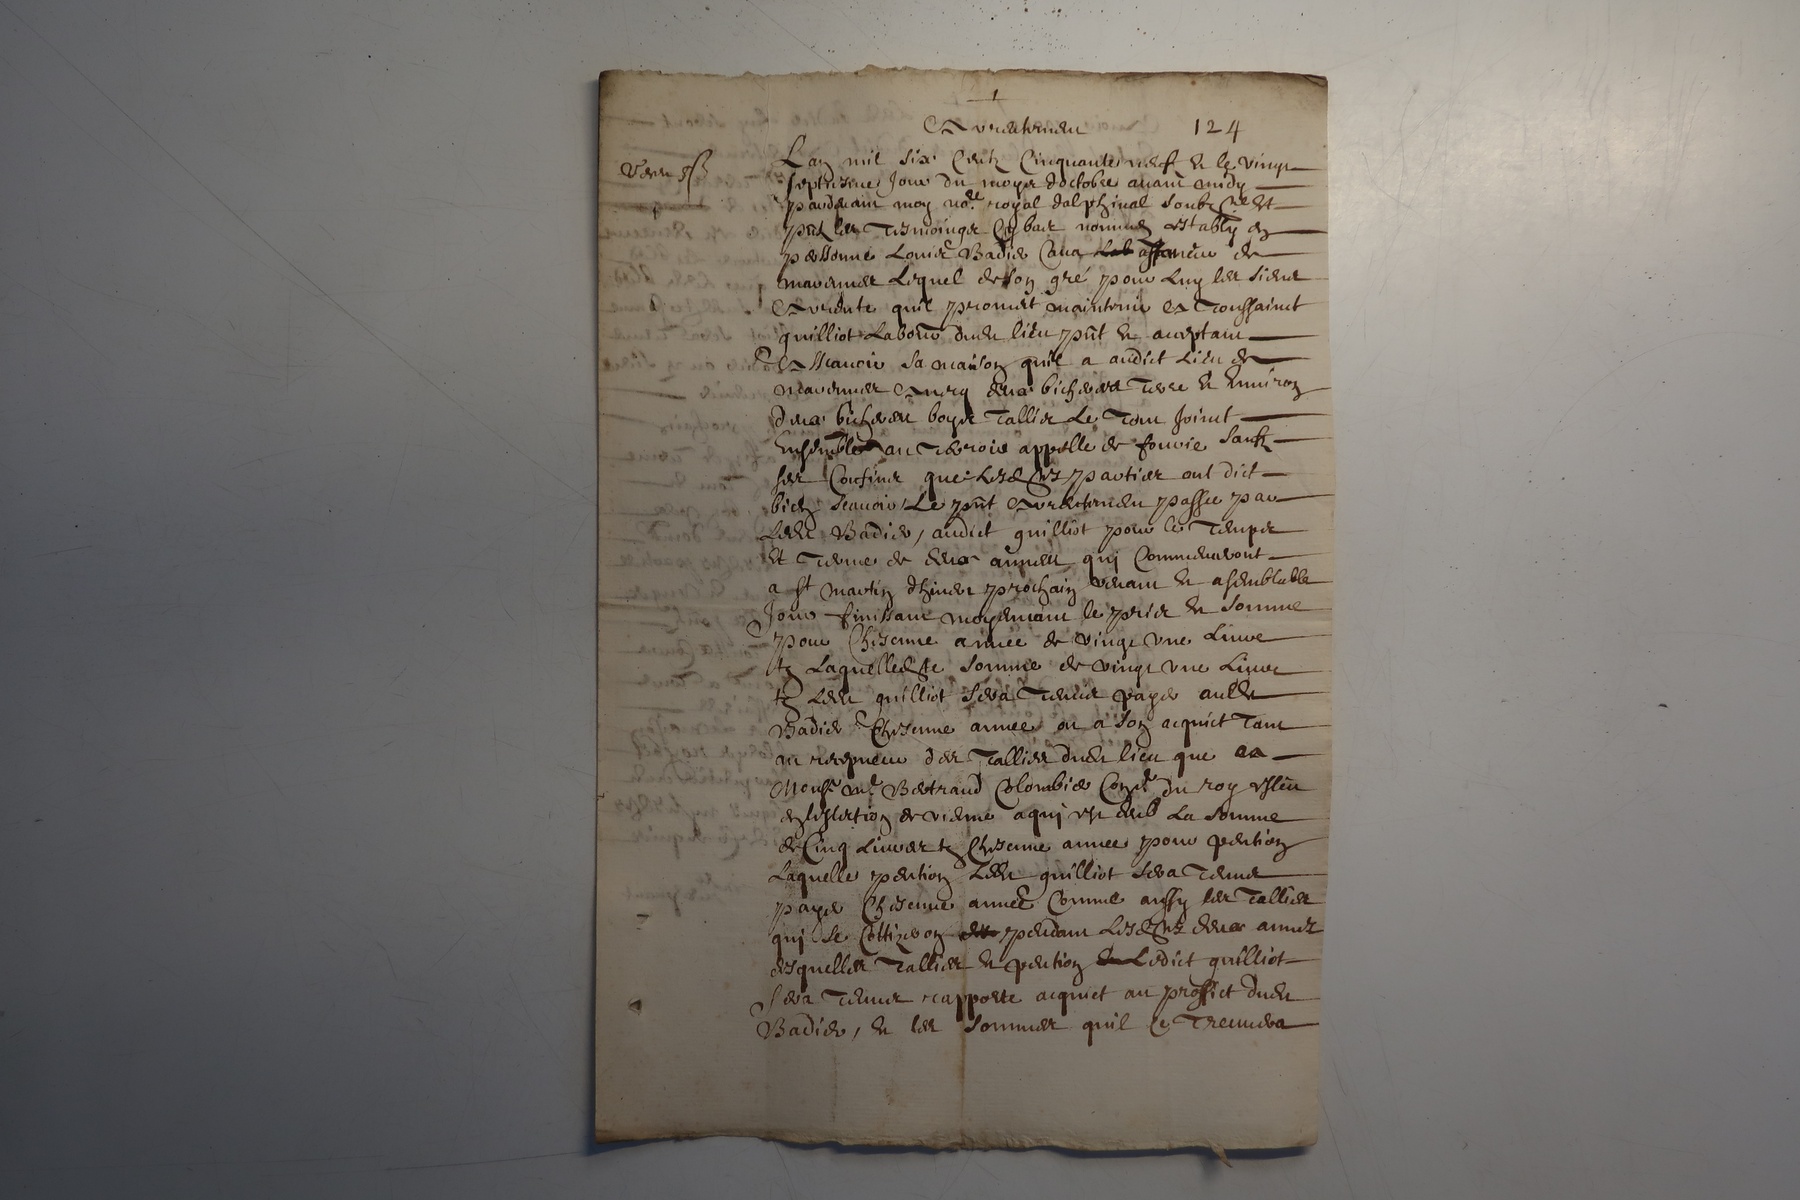 1
Arrentement 124
L'an mil six centz cinquante neuf et le vingt
septiesme Jour du moys d'octobre avant midy
pardevant moy no.re royal dalphinal soubz.né et
pnt les tesmoings cy bas nommez estably en
personne Louis Badier affaneur de
lequel de son gré pour luy les siens
arrente quil promet maintenir a Toussainct
quilliot Labour dudt lieu pnt et aceptant
a Scavoir sa maison quil a audict lieu de
terre et environ
deux le tout Joinct
Ensemble au terroir appelle de sauf
ses confins que lesd parties ont dict
bien scavoir Le pnt arrentement passée par
Ledt Badier, audict quilliot pour le temps
et terme de deux années quj commenceront
a st martin d'hiver prochain venant et a semblable
Jour finissant moyenant le pris et somme
pour chesenne année de vingt une Livre
tz Laquelledte somme de vingt une Livre
tz Ledt quilliot sera tenir payer audt
Badier chesenne année ou a son acquict tant
au recepveur des tallies dudt lieu que a
Monsr mr Bertrand Colombier Conser du roy esleu
en leslection de vienne a quj est deub La somme
de Cinq Livres tz chesenne année pour pention
Laquelle pention Ledt quilliot sera tenir
payer chesenne année comme aussy les tallies
quj se Cottizeron pendant lesd deux année
desquelles tallies et pention Ledict quilliot
sera tenir rapporte acquict au proffict dudt
Badier, et les sommes quil ce treuvera